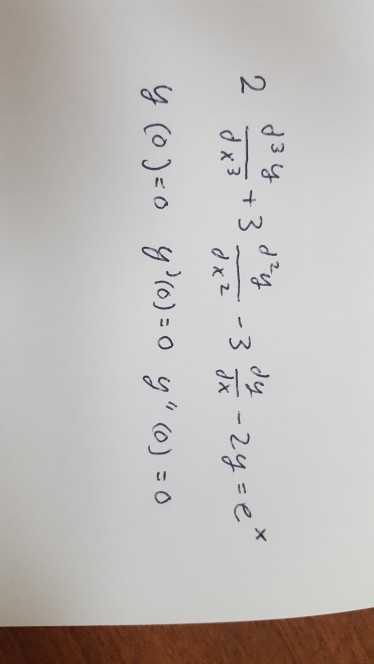 2 d³y/dx³ + 3 d²y/dx² - 3 dy/dx - 2y = eˣ
y(0)=0 y'(0)=0 y"(0)=0